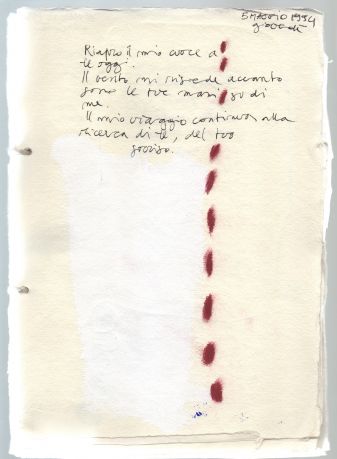 5 MAGGIO 1994
giovedì
Riapro il mio cuore a
te oggi.
Il vento mi siede accanto
sono le tue mani su di
me.
Il mio viaggio continua alla
ricerca di te, del tuo
sorriso.